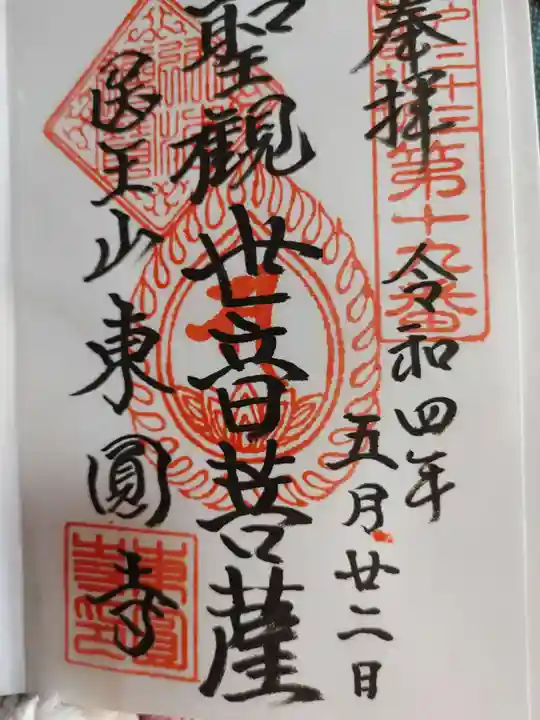 奉拝
第十九番
令和四年
五月廿二日
聖観世音菩薩
医王山東圓寺